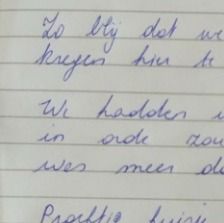 Zo blij dat we
kregen hier te
We hadden
in orde zou
was meer da
Prachtig huisje